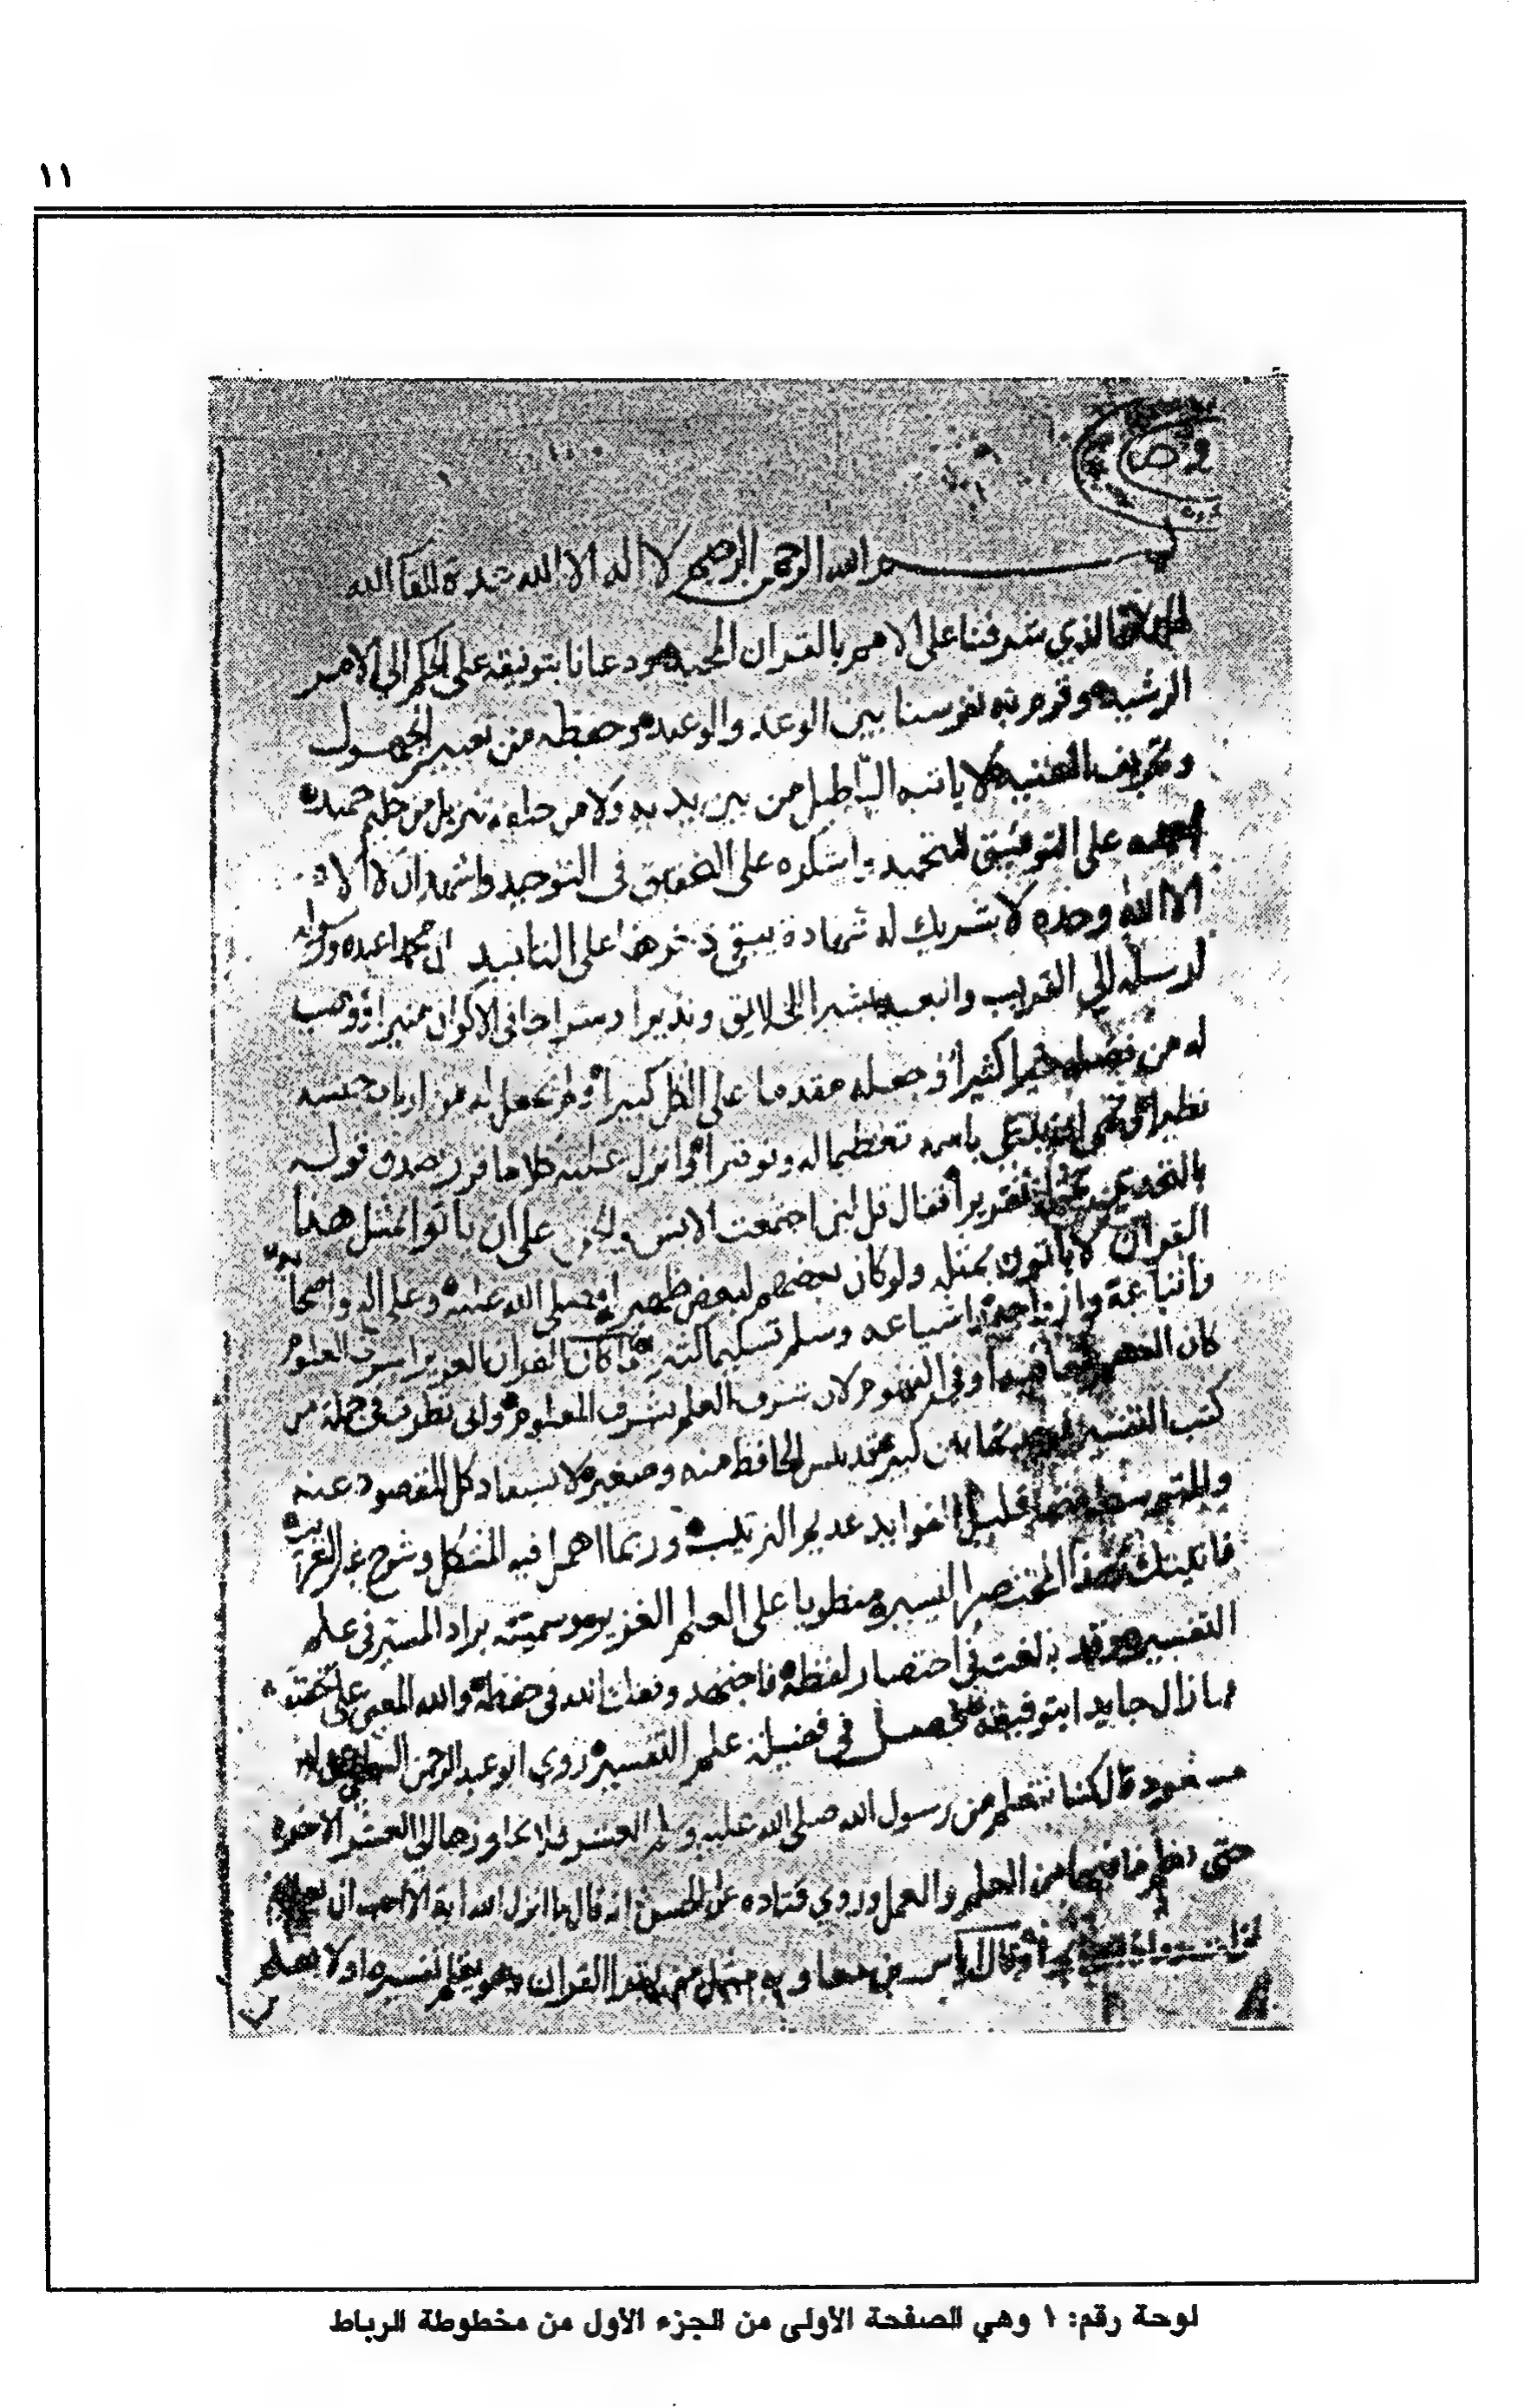 ١١
وقف
بسم الله الرحمن الرحيم لا اله الا الله عدة للقاء الله
الحمد لله الذي شرفنا على الامم بالقران المجيد ودعانا بتوفيقه على الحكم الى الامر
الرشيد وقوم به نفوسنا بين الوعد والوعيد وحفظه من تغيير الجهول
وتحريف العنيد لا ياتيه الباطل من بين يديه ولا من خلفه تنزيل من حكيم حميد
احمده على التوفيق للتحميد واشكره على التحقيق في التوحيد واشهد ان لا اله
الا الله وحده لا شريك له شهادة يبقى ذخرها على التابيد وان محمدا عبده ورسوله
ارسله الى القريب والبعيد بشيرا للخلائق ونذيرا وسراجا في الاكوان منيرا ووهب
له من فضله خيرا كثيرا وجعله مقدما على الكل كبيرا ولم يجعل له من ارباب جنسه
نظيرا ونهى ان يدعى باسمه تعظيما له وتوقيرا وانزل عليه كلاما قرر صدق قوله
بالتحدي بمثله تقريرا فقال قل لئن اجتمعت الانس والجن على ان ياتوا بمثل هذا
القران لا ياتون بمثله ولو كان بعضهم لبعض ظهيرا فصلى الله عليه وعلى اله واصحابه
واتباعه وازواجه واشياعه وسلم تسليما كثيرا لما كان القران العزيز اشرف العلوم
كان الفهم لمعانيه اوفى الفهوم لان شرف العلم بشرف المعلوم واني نظرت في جملة من
كتب التفسير فوجدتها بين كبير قد يئس الحافظ منه وصغير لا يستفاد كل المقصود منه
والمتوسط منها قليل الفوايد عديم الترتيب وربما اهمل فيه المشكل وشرح غير الغريب
فاتيتك بهذا المختصر اليسير منطويا على العلم الغزير ووسمته بزاد المسير في علم
التفسير وقد بالغت في اختصار لفظه فاجتهد وفقك الله في حفظه والله المعين على تحقيقه
فما زال جايدا بتوفيقه فصل في فضيلة علم التفسير روى ابو عبد الرحمن السلمي عن ابن
مسعود قال كنا نتعلم من رسول الله صلى الله عليه وسلم العشر فلا نجاوزها الى العشر الاخر
حتى نعلم ما فيها من العلم والعمل وروى قتاده عن الحسن انه قال ما انزل الله اية الا احب ان
وقال اياس بن معاوية مثل من يقرا القران وهو يعلم تفسيره او لا يعلم
لوحة رقم: ١ وهي الصفحة الأولى من الجزء الأول من مخطوطة الرباط